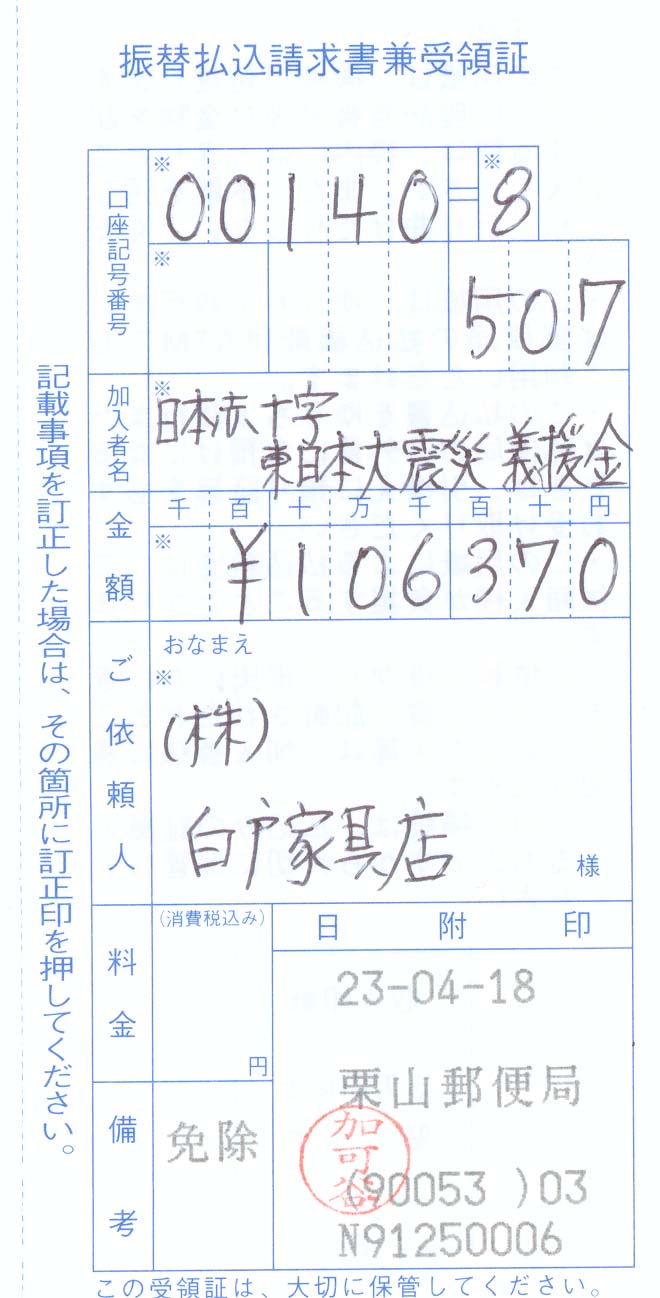 振替払込請求書兼受領証
口座記号番号
※ 00140=※8
※ 507
加入者名
※日本赤十字
東日本大震災 義援金
金額
千百十万千百十円
※ ¥106370
ご依頼人
おなまえ
※
(株)
白戸家具店
様
料金
(消費税込み)
円
備考
免除
日附印
23-04-18
栗山郵便局
加可谷
(90053 )03
N91250006
記載事項を訂正した場合は、その箇所に訂正印を押してください。
この受領証は、大切に保管してください。